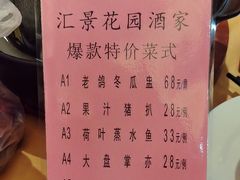 汇景花园酒家
爆款特价菜式
A1 老鸽冬瓜盅 68元/
A2 果汁猪扒 28元/例
A3 荷叶蒸水鱼 33元/例
A4 大盘掌亦 28元/例